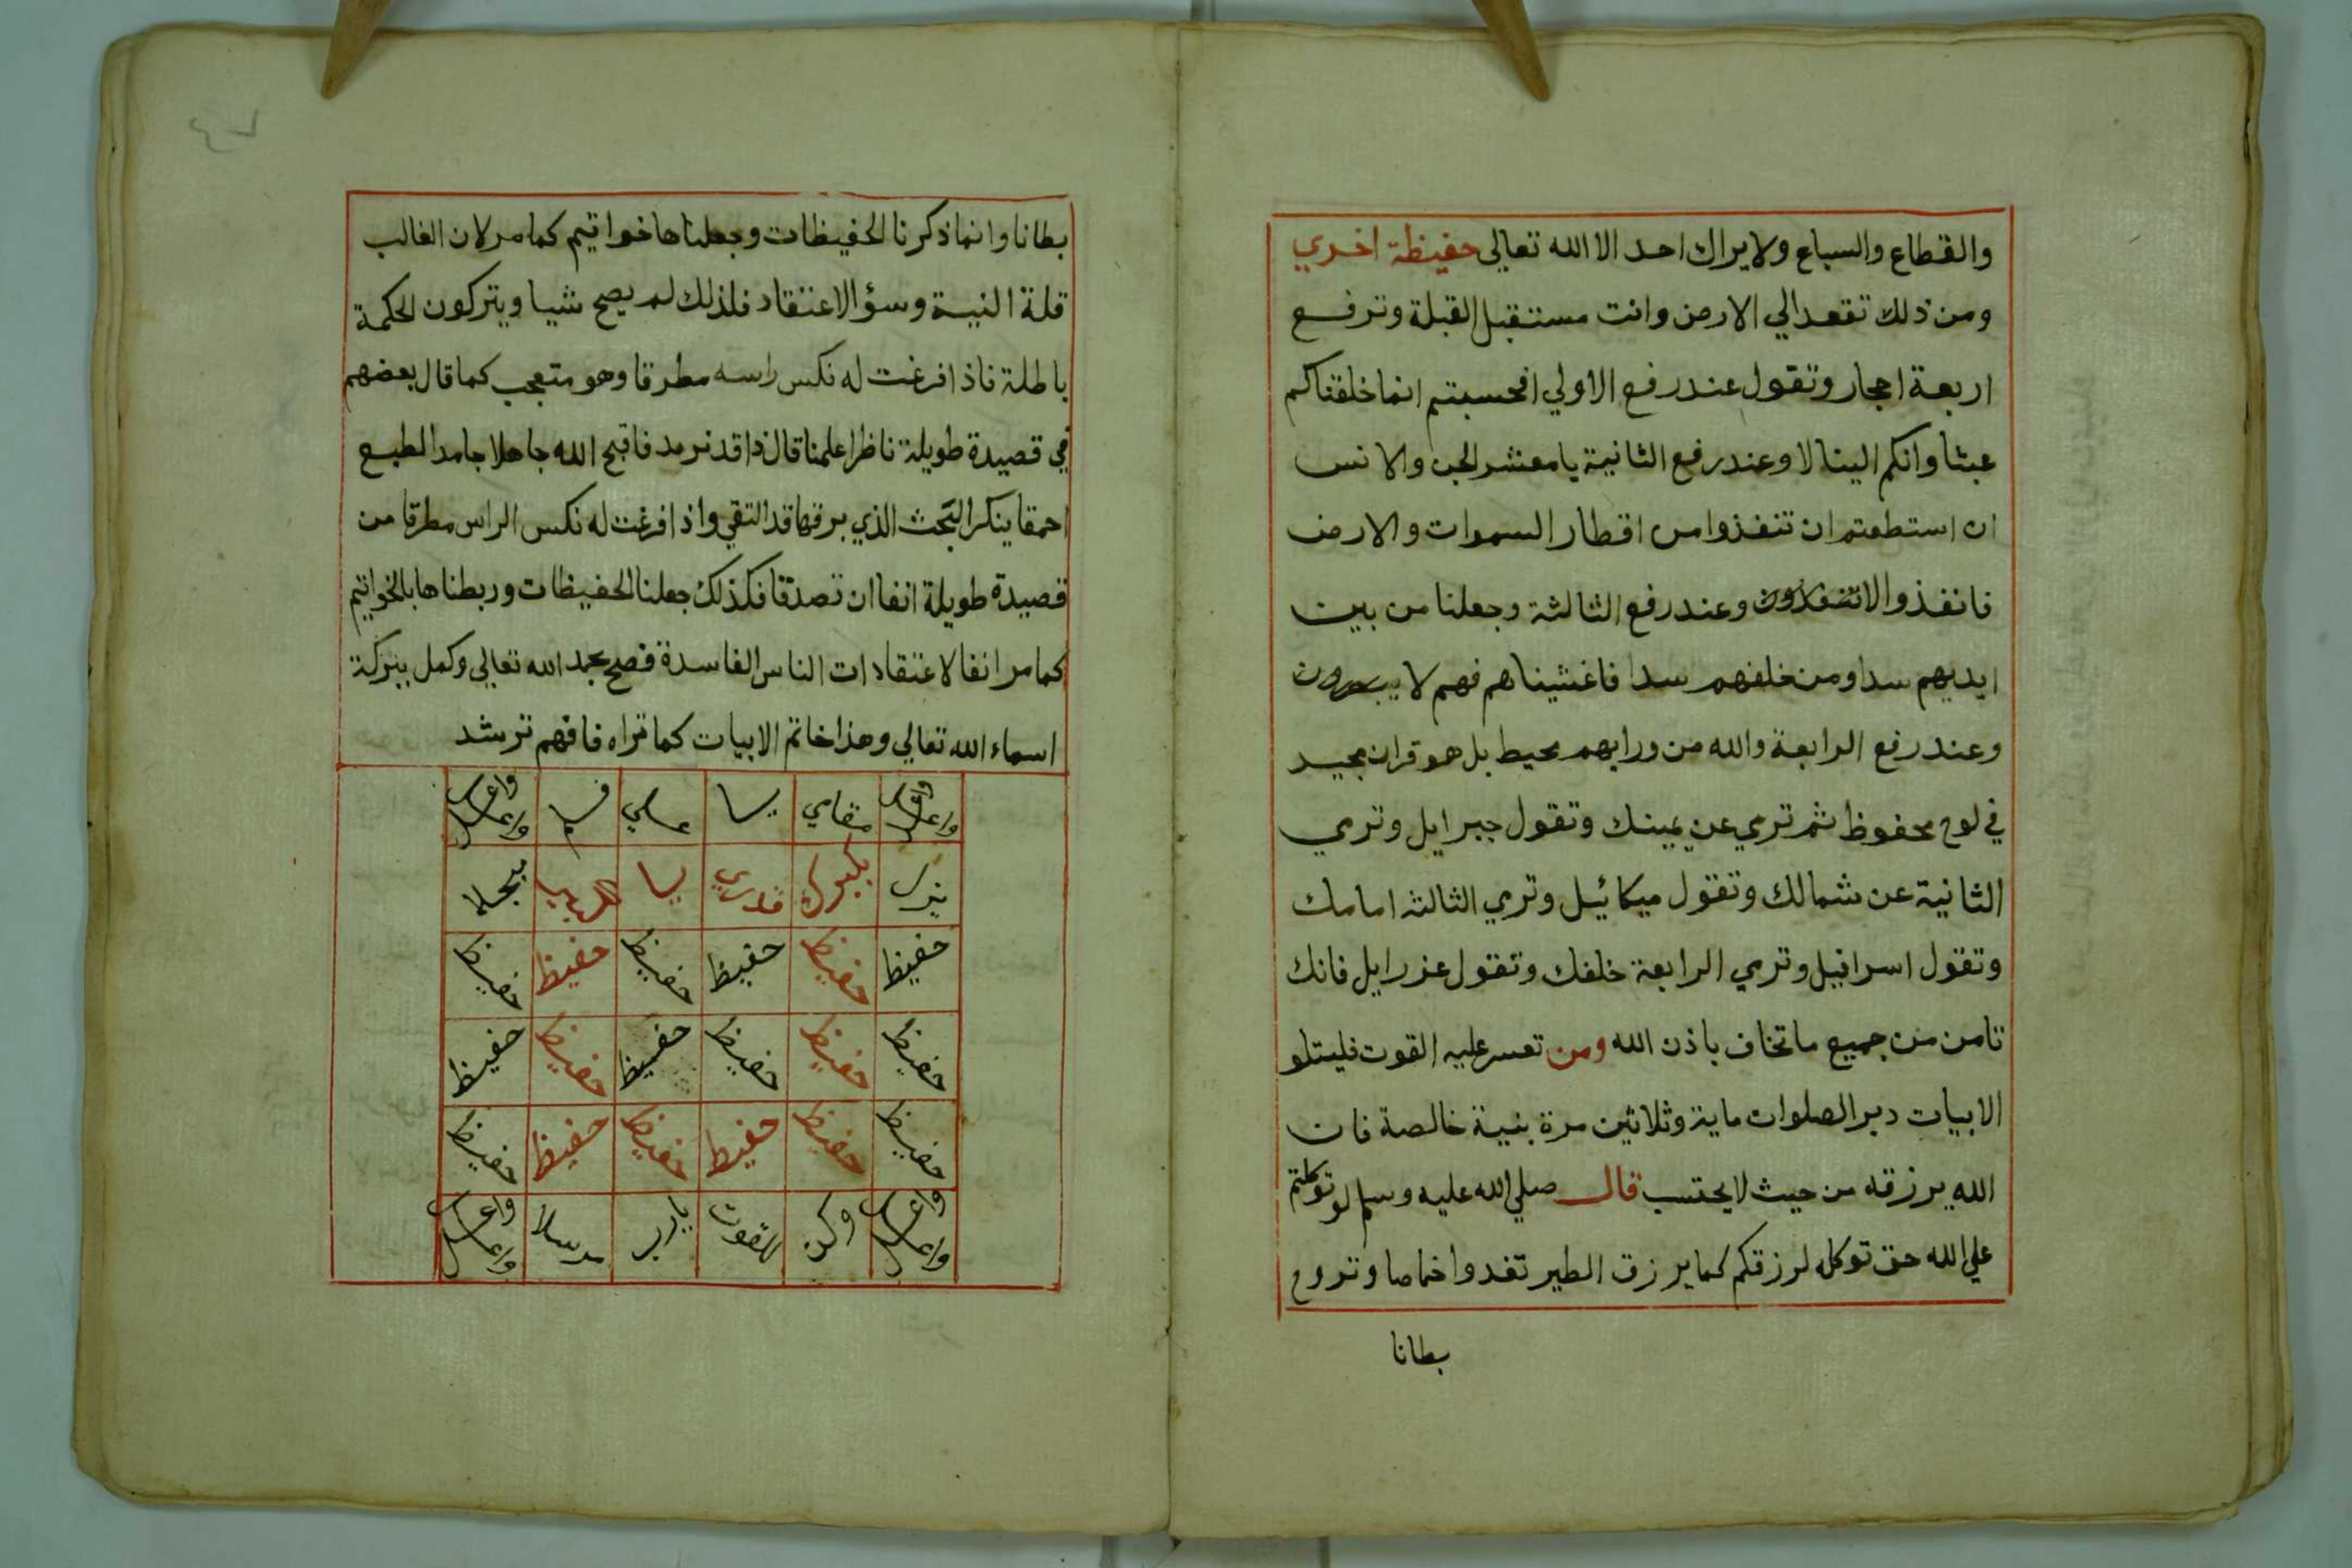 والقطاع والسباع ولا يراك احد الا الله تعالى حفيظة اخري
ومن ذلك تقعد الي الارض وانت مستقبل القبلة وترفع
اربعة احجار وتقول عند رفع الاولي افحسبتم انما خلقناكم
عبثا وانكم الينا لا وعند رفع الثانية يا معشر الجن والانس
ان استطعتم ان تنفذوا من اقطار السموات والارض
فانفذوا لا تنفذون وعند رفع الثالثة وجعلنا من بين
ايديهم سدا ومن خلفهم سدا فاغشيناهم فهم لا يبصرون
وعند رفع الرابعة والله من ورايهم محيط بل هو قران مجيد
في لوح محفوظ ثم ترمي عن يمينك وتقول جبرايل وترمي
الثانية عن شمالك وتقول ميكائيل وترمي الثالثة امامك
وتقول اسرافيل وترمي الرابعة خلفك وتقول عزرايل فانك
تامن من جميع ما تخاف باذن الله ومن تعسر عليه القوت فليتلو
الابيات دبر الصلوات ماية وثلاثين مرة بنية خالصة فان
الله يرزقه من حيث لا يحتسب قال صلي الله عليه وسلم لو توكلتم
علي الله حق توكله لرزقكم كما يرزق الطير تغدوا خماصا وتروح
بطانا
بطانا وانما ذكرنا الحفيظات وجعلناها خواتيم كما مر لان الغالب
قلة النية وسؤ الاعتقاد فلذلك لم يصح شيا ويتركون الحكمة
باطلة فاذا فرغت له نكس راسه مطرقا وهو متعجب كما قال بعضهم
في قصيدة طويلة ناظرا علمنا قال ذا قد نرمد فاقبح الله جاهلا جامد الطبع
احمقا ينكر البحث الذي برقها قد التقي واذا فرغت له نكس الراس مطرقا من
قصيدة طويلة انفا ان تصدقا فكذلك جعلنا الحفيظات وربطناها بالخواتيم
كما مر انفا لاعتقادات الناس الفاسدة فصح بحمد الله تعالي وكمل ببركة
اسماء الله تعالي وهذا خاتم الابيات كما تراه فافهم ترشد
مقامي يا
يا
حفيظ حفيظ حفيظ حفيظ حفيظ حفيظ
حفيظ حفيظ حفيظ حفيظ حفيظ حفيظ
حفيظ حفيظ حفيظ حفيظ حفيظ حفيظ
وكن للقوت يارب مرسلا